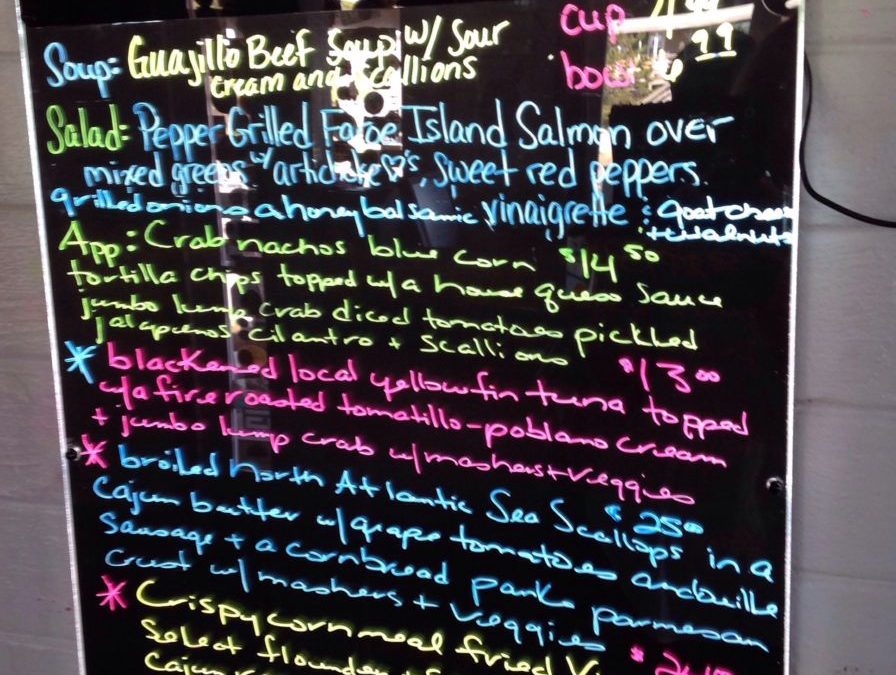 Soup: Guajillo Beef Soup w/ Sour
cream and scallions
cup 4 99
bowl 6 99
Salad: Pepper Grilled Faroe Island Salmon over
mixed greens w/ artichoke ♡'s, sweet red peppers.
grilled onions a honey balsamic vinaigrette : goat cheese
+ walnuts
App: Crab nachos blue corn $14 50
tortilla chips topped w/a house queso sauce
jumbo lump crab diced tomatoes pickled
jalapenos cilantro + scallions
* blackened local yellowfin tuna topped $13 00
w/a fire roasted tomatillo-poblano cream
+ jumbo lump crab w/mashers + veggies
* broiled North Atlantic Sea Scallops in a $25 00
Cajun butter w/grape tomatoes andouille
Sausage + a cornbread panko parmesan
Crust w/mashers + veggies
* Crispy cornmeal fried
Select flounder
Cajun